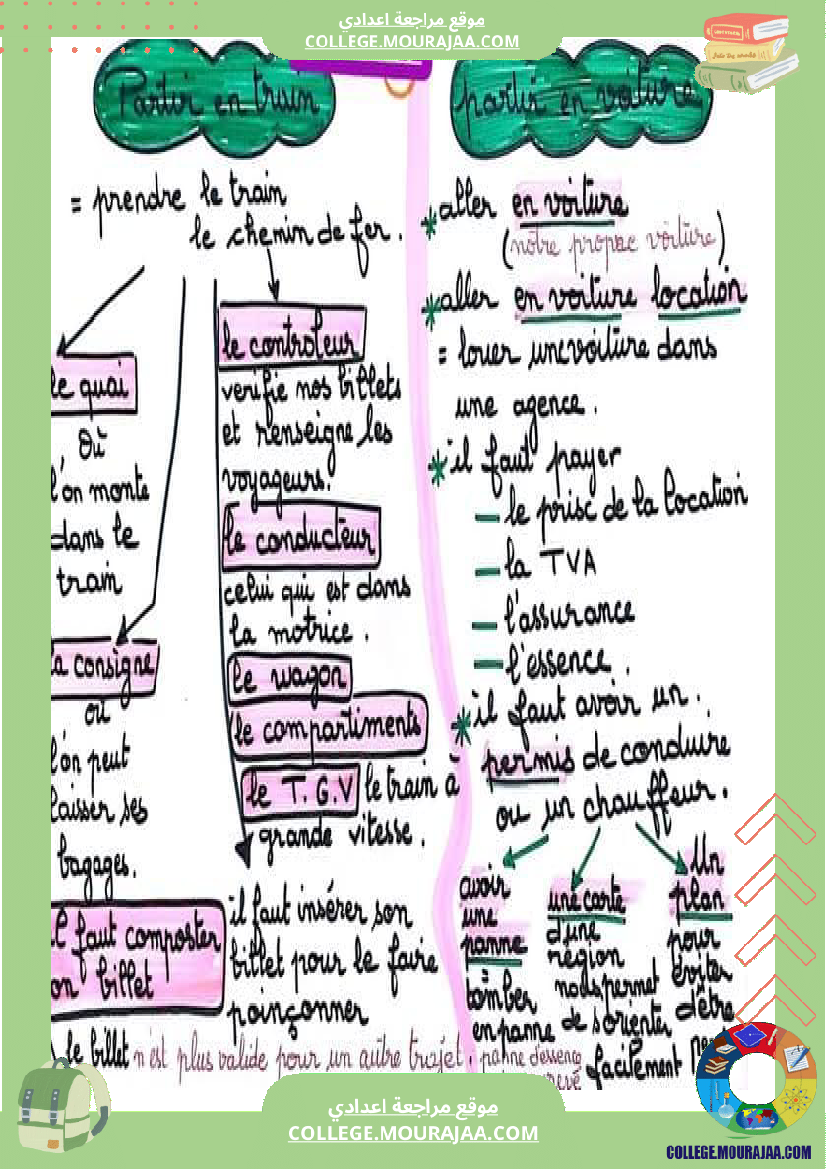 موقع مراجعة اعدادي
COLLEGE.MOURAJAA.COM
Partir en train
= prendre le train
le chemin de fer.
le quai
où
l'on monte
dans le
train
la consigne
où
l'on peut
laisser ses
bagages.
il faut composter
on billet
le controleur
verifie nos billets
et renseigne les
voyageurs.
le conducteur
celui qui est dans
la motrice.
le wagon
le compartiments
le T.G.V le train à
grande vitesse.
il faut insérer son
billet pour le faire
poinçonner
le billet n'est plus valide pour un autre trajet.
partir en voiture
*aller en voiture
(nôtre propae voiture)
*aller en voiture location
= louer une voiture dans
une agence.
*il faut payer
– le prisc de la location
– la TVA
– l'assurance
– l'essence.
*il faut avoir un.
permis de conduire
ou un chauffeur.
avoir
une
panne
=
tomber
en panne
panne d'essence
une carte
d'une
région
nous permet
de s'orienter
facilement
Un
plan
pour
éviter
d'être
موقع مراجعة اعدادي
COLLEGE.MOURAJAA.COM
COLLEGE.MOURAJAA.COM